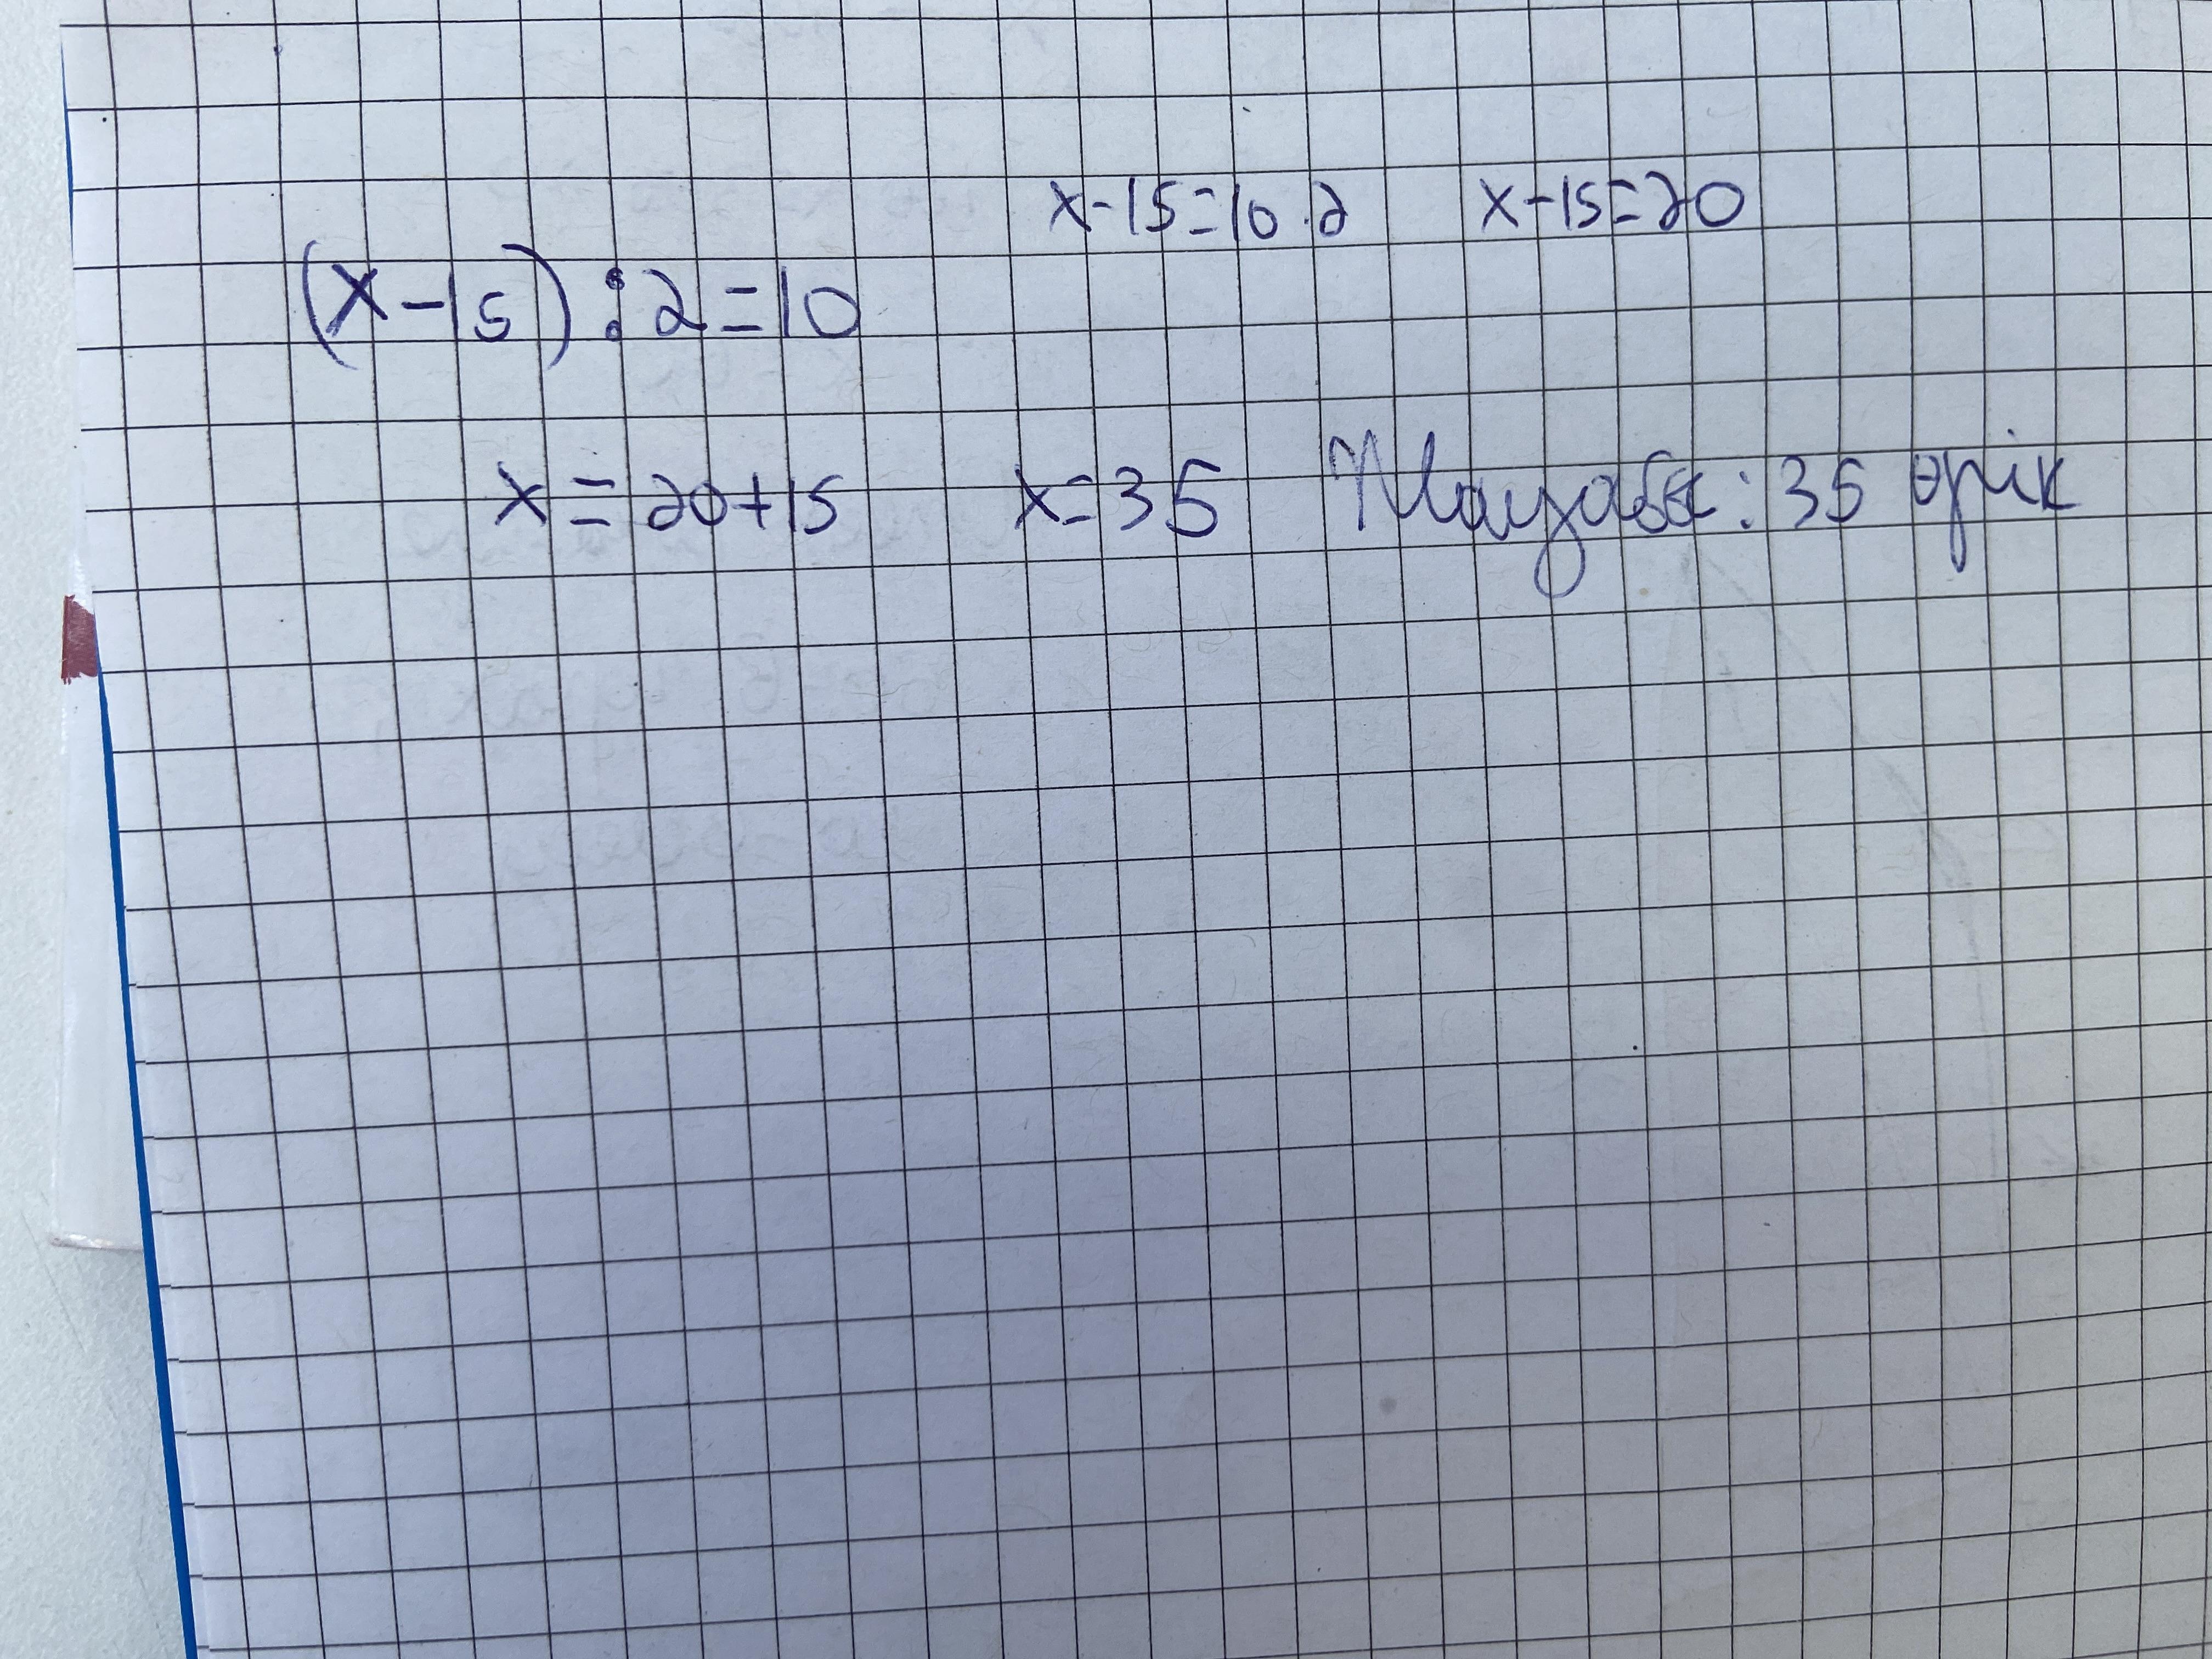 x-15=10·2 x-15=20
(x-15):2=10
x=20+15 x=35 Жауабы: 35 өрік